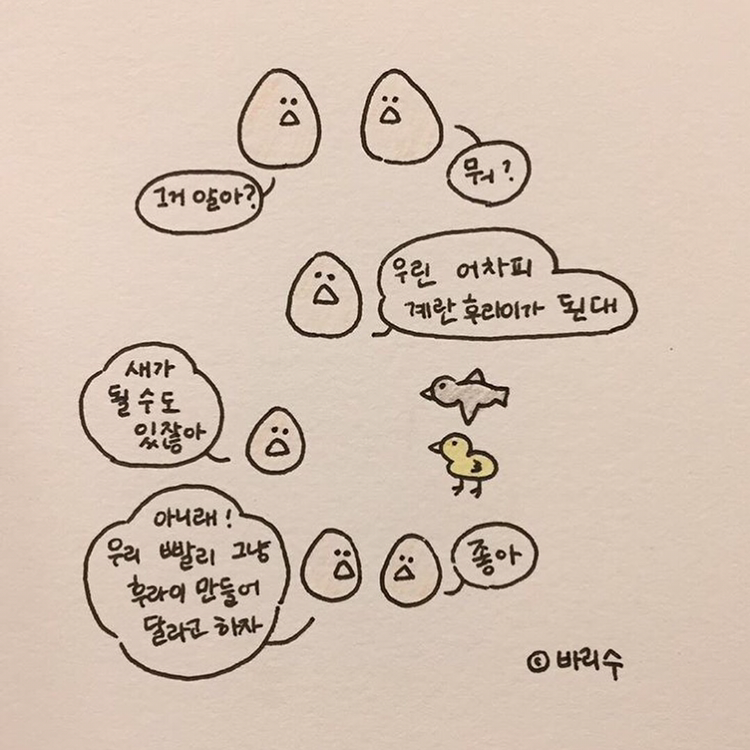 그거 알아?
뭐?
우린 어차피
계란후라이가 된대
새가
될 수도
있잖아
아니래!
우리 빨리 그냥
후라이 만들어
달라고 하자
좋아
© 바리수